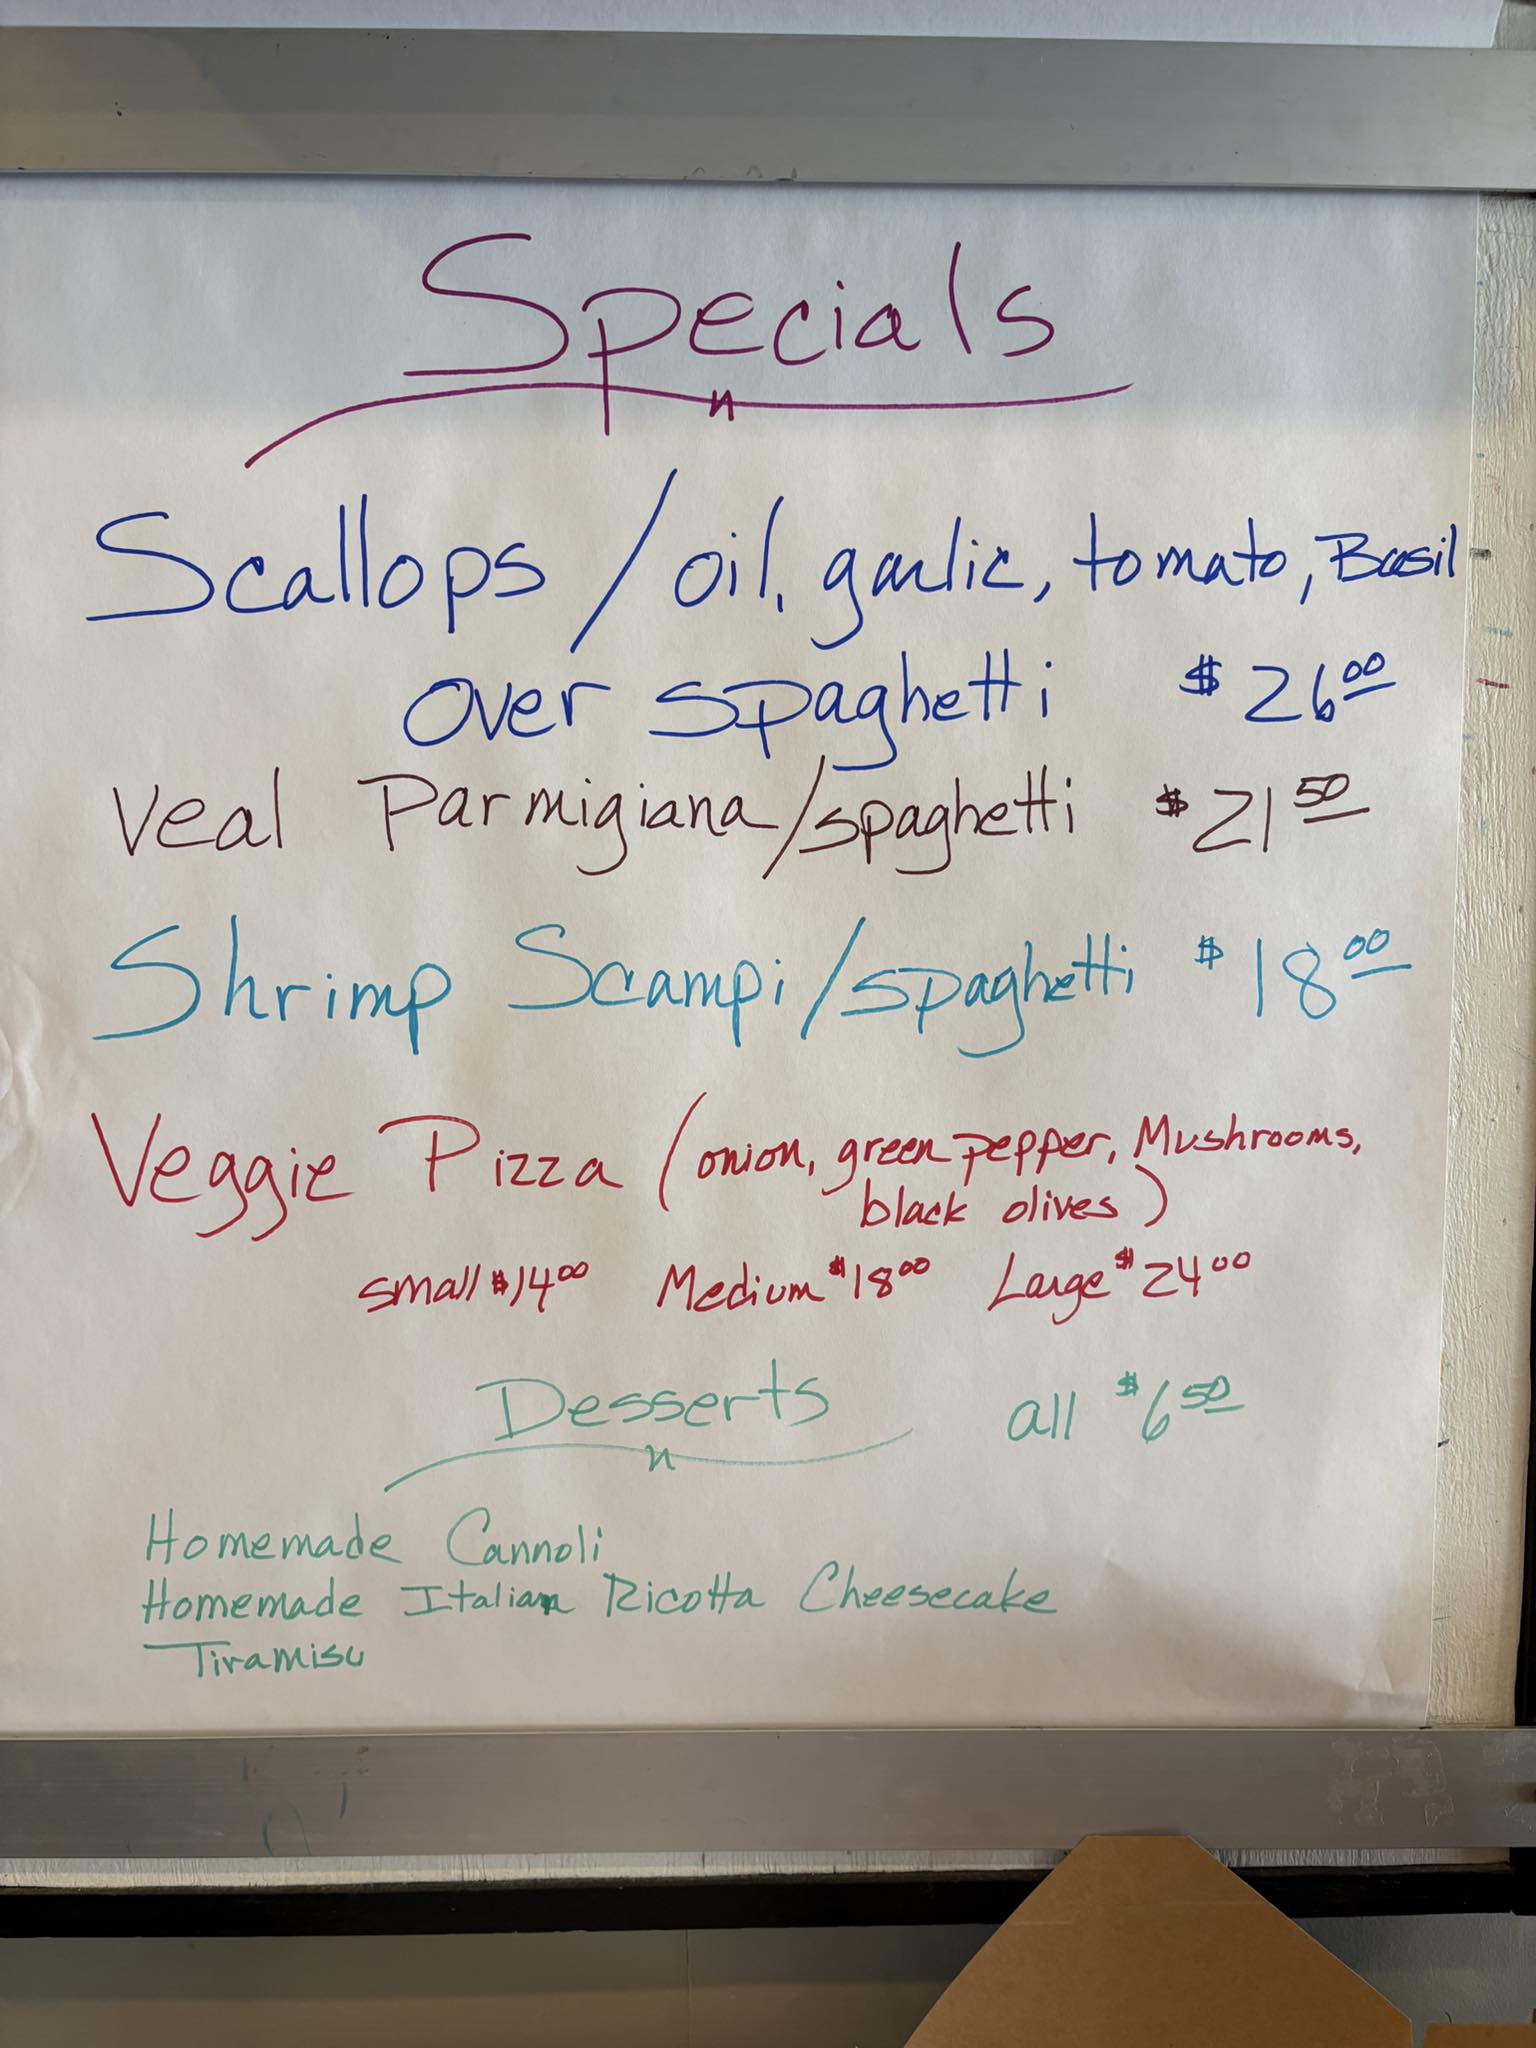 Specials
Scallops / oil, garlic, tomato, Basil
over spaghetti $26.00
Veal Parmigiana/spaghetti $21.50
Shrimp Scampi/spaghetti $18.00
Veggie Pizza (onion, green pepper, Mushrooms,
black olives)
small $14.00 Medium $18.00 Large $24.00
Desserts all $6.50
Homemade Cannoli
Homemade Italian Ricotta Cheesecake
Tiramisu